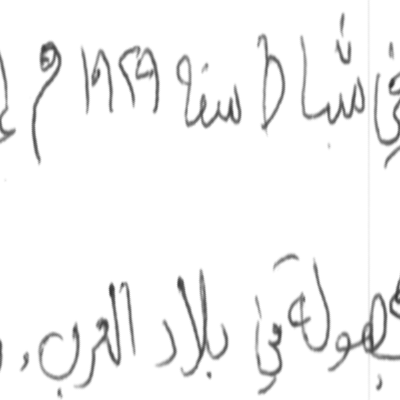 في شباط سنة ١٩٢٩ م
مجهولة في بلاد العرب،